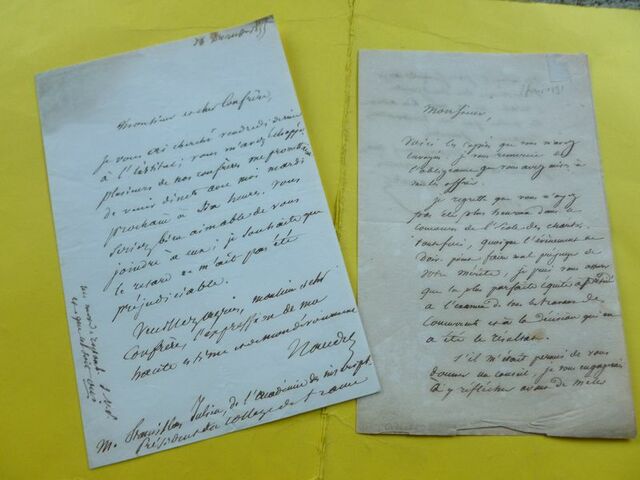 Monsieur et cher Confrère,
je vous ai cherché vendredi dernier
à l'institut, vous m'avez échappé.
plusieurs de nos confrères me promettent
de venir dîner avec moi mardi
prochain à six heures. vous
seriez bien aimable de vous
joindre à eux; je souhaite que
le retard ne m'ait pas été
préjudiciable.
Veuillez agréer, monsieur et cher
Confrère, l'expression de ma
haute estime et mon dévouement
Naudet
M. Stanislas Julien, de l'académie des inscript.
Président du Collège de France
Monsieur,
Voici les copies que vous m'avez
envoyées je vous remercie de
l'obligeance que vous avez mise à
me les offrir.
je regrette que vous n'ayez
pas été plus heureux dans le
concours de l'école des chartes.
toutefois, quoique l'événement ne
doive point faire mal préjuger de
votre mérite, je puis vous assurer
que la plus parfaite équité a présidé
à l'examen de tous les travaux de
concurrents et à la décision qui en
a été le résultat.
S'il m'était permis de vous
donner un conseil, je vous engagerais
à y réfléchir avant de